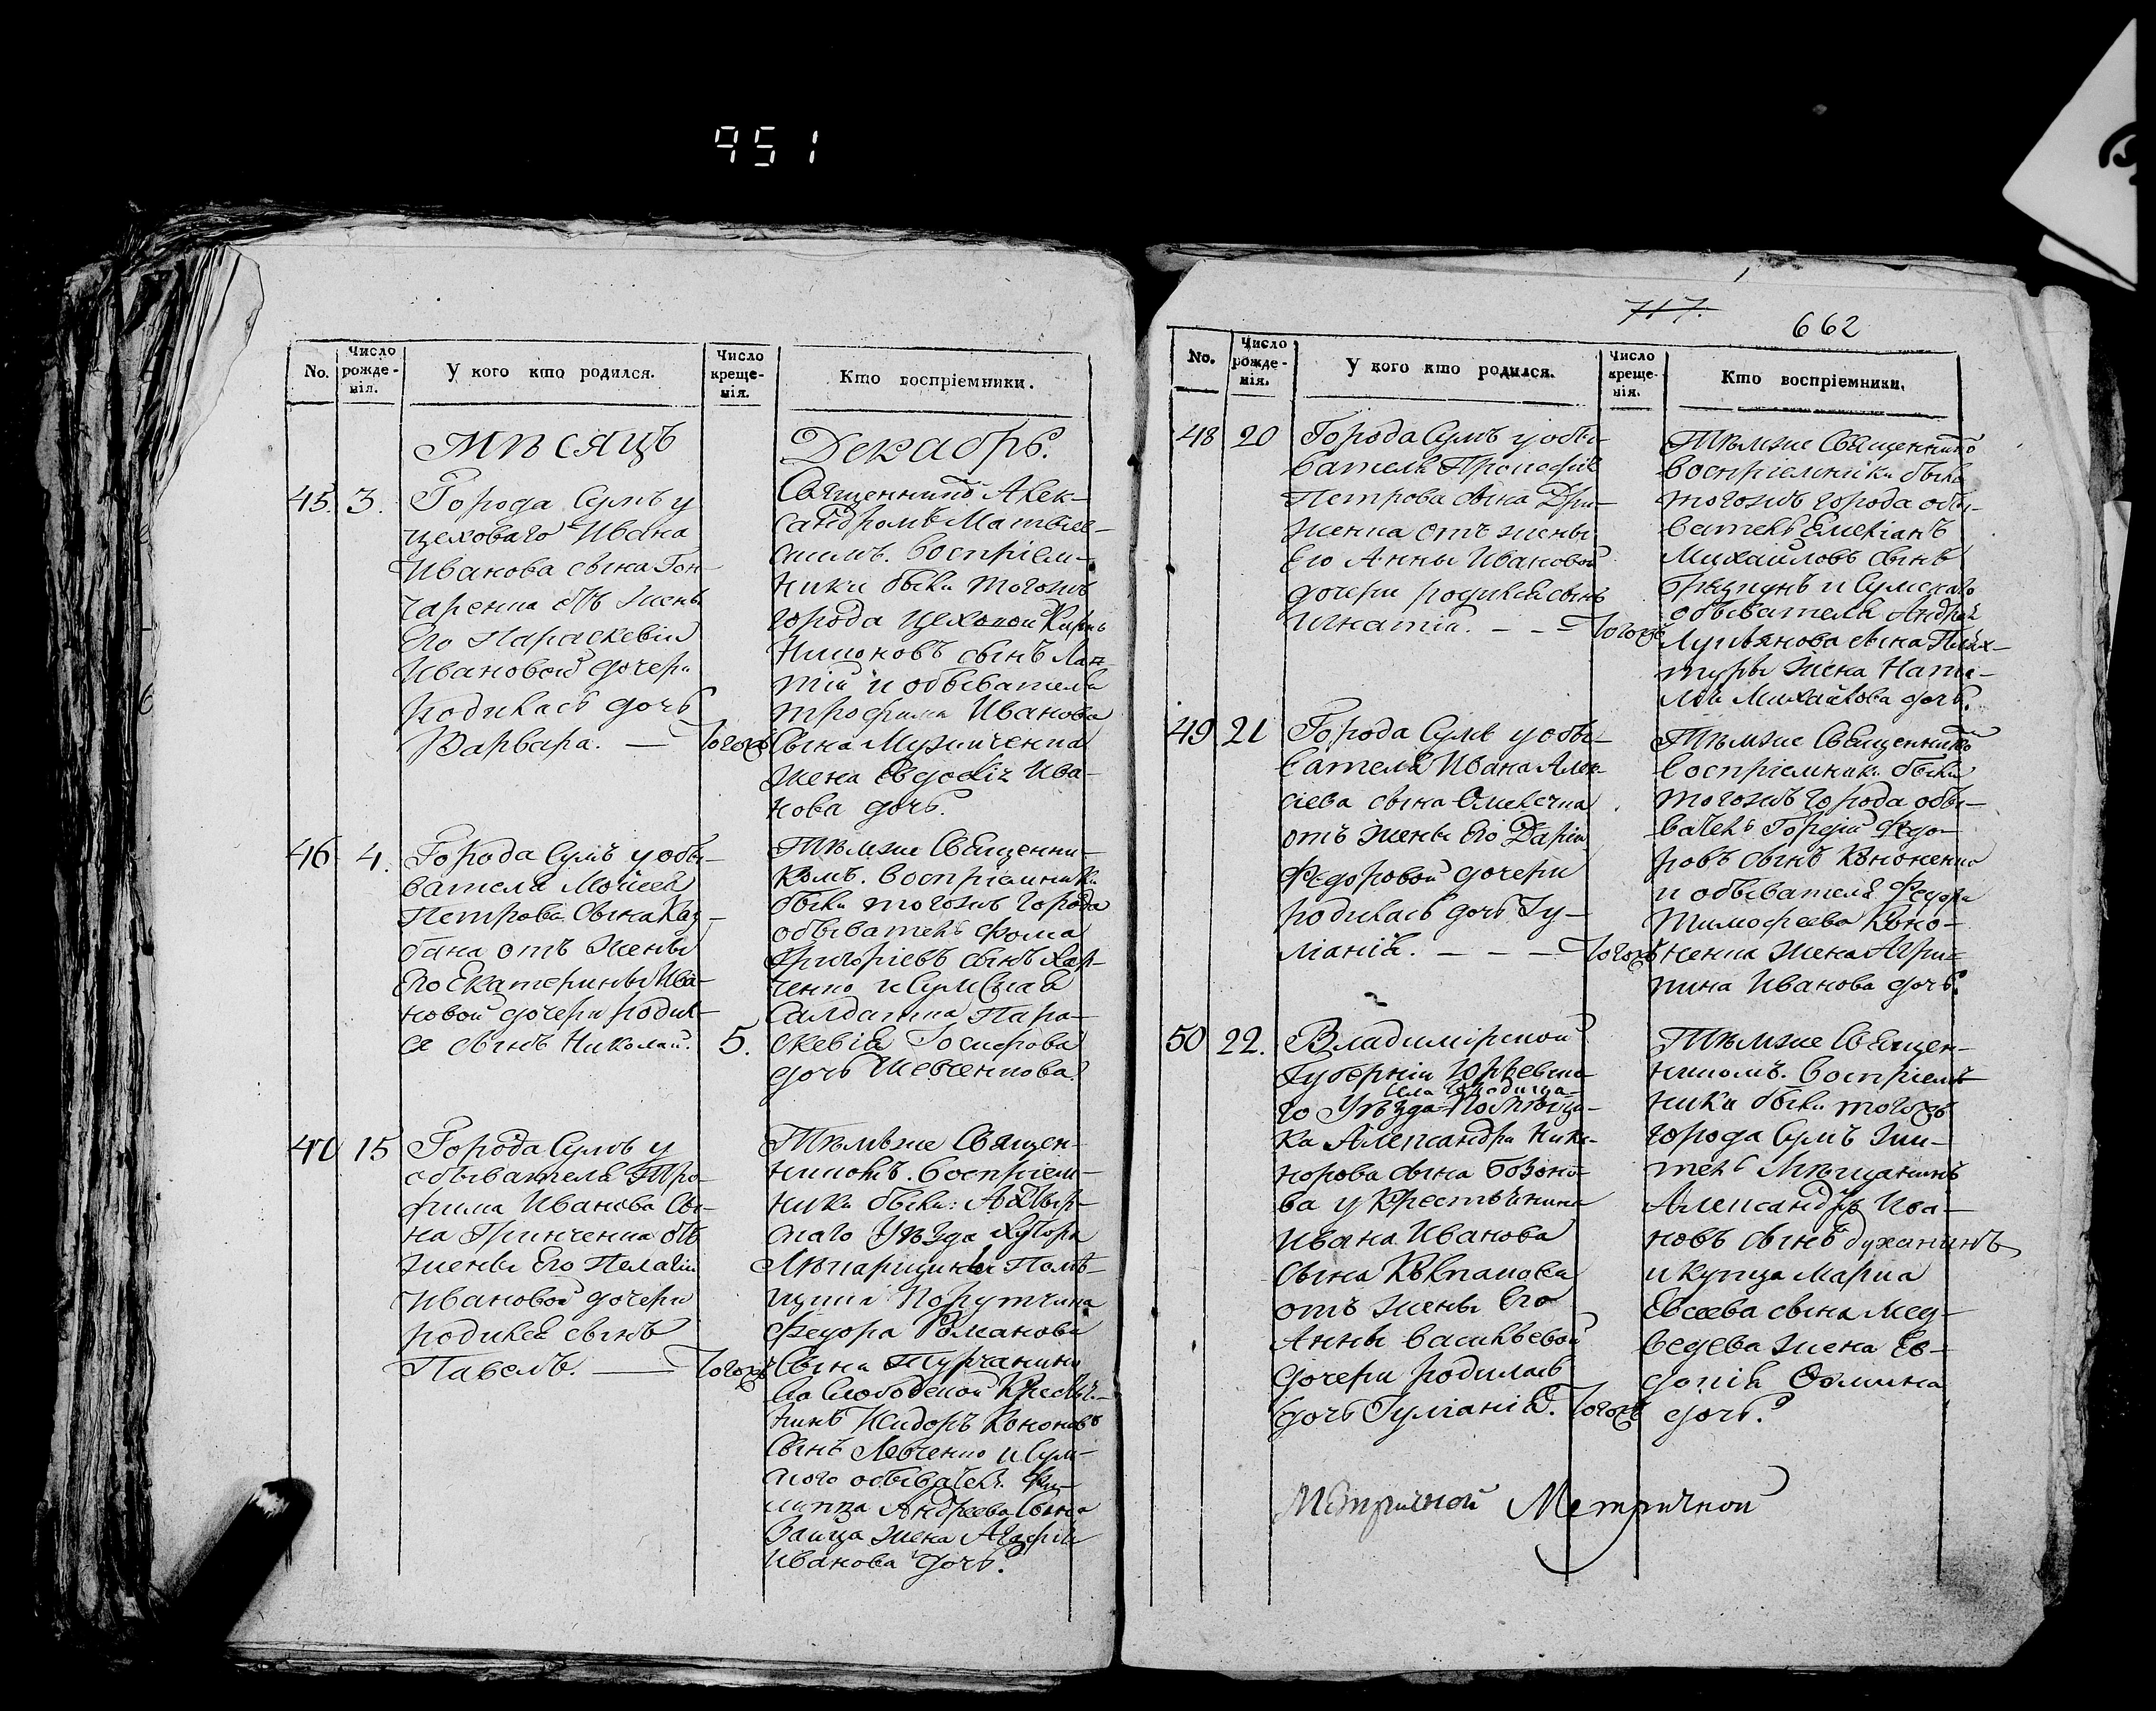 951
No.
Число рожде- нія.
У кого кто родился.
Число креще- нія.
Кто воспріемники.
Мѣсяцъ
Декабрь.
45. 3.
Города Сумъ у
цеховаго Ивана
Иванова сына Гон-
чаренка отъ жены
Его Параскевіи
Ивановой дочери
родилась дочь
Варвара. — Тогожъ
Священникъ Алек-
сандромъ Матвее-
вымъ. Воспріем-
ники были тогожъ
города цеховой
сынъ Лап-
тій и обывателя
Трофима Иванова
сына Музиченка
жена Евдокія Ива-
нова дочь.
46 4.
Города Сумъ у обы-
вателя Мойсея
Петрова сына Каз-
бана отъ жены
Его Екатерины Ива-
новой дочери родил-
ся сынъ Николай. 5.
Тѣмже Священни-
комъ. Воспріемники
были тогожъ города
обыватель Фома
Григоріевъ сынъ Хар-
ченко и Сумская
Салдатка Пара-
скевія Іосифова
дочь Шевченкова.
47 15
Города Сумъ у
обывателя Тро-
фима Иванова Сы-
на Гринченка отъ
жены Его Пелагіи
Ивановой дочери
родился сынъ
Павелъ. — Тогожъ
Тѣмъже Священ-
никомъ. Воспріем-
ники были: Ахтыр-
скаго Уѣзда Хутора
Помѣ-
щика Порутчика
Федора Романова
Сына Турчанино-
ва Крестья-
нинъ Исидоръ Кононовъ
Сынъ Левченко и Сум-
ского обывателя Фи-
липпа Андреева Сына
Заица жена Агафія
Иванова дочь.
717.
662
No.
Число рожде- нія.
У кого кто родился.
Число креще- нія.
Кто воспріемники.
48 20
Города Сумъ у обы-
вателя Прокофія
Петрова сына Дри-
женка отъ жены
Его Анны Ивановой
дочери родился сынъ
Игнатій. - - - Тогожъ
Тѣмже Священникомъ
Воспріемники были
тогожъ города обы-
ватель Емеліанъ
Михайловъ сынъ
и Сумскаго
обывателя Андрея
Лукьянова сына Плах-
туры жена Ната-
лія Михайлова дочь.
49 21
Города Сумъ у обы-
вателя Ивана Алек-
сіева сына Олексенка
отъ жены Его Даріи
Федоровой дочери
родилась дочь Іу-
ліанія. - - - Тогожъ
Тѣмже Священникомъ
Воспріемники были
тогожъ города обы-
ватель Гордій Федо-
ровъ сынъ Кононенко
и обывателя Федора
Тимофеева Коно-
ненка жена Агрип-
пина Иванова дочь.
50 22.
Владимірской
Губерніи Юрьевска-
села Городища
го Уѣзда Помѣщи-
ка Александра Ника-
норова сына
ва у Крестьянина
Ивана Иванова
Сына
отъ жены Его
Анны Васильевой
дочери родилась
дочь Іуліанія. Тогожъ
Тѣмже Священ-
никомъ. Воспріем-
ники были тогожъ
города Сумъ жи-
тель Мѣщанинъ
Александръ Ива-
новъ сынъ Духанинъ
и купца Марка
Евсеева сына Мед-
ведева жена Ев-
докія Фомина
дочь.
Метричной Метричной